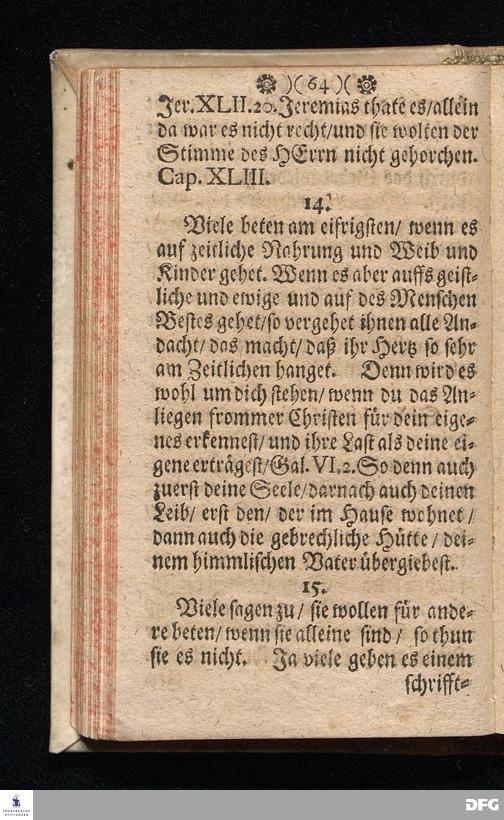 )( 64 )(
Jer. XLII. 20. Jeremias thate es/ allein
da war es nicht recht/ und sie wolten der
Stimme des HErrn nicht gehorchen.
Cap. XLIII.
14.
Viele beten am eifrigsten/ wenn es
auf zeitliche Nahrung und Weib und
Kinder gehet. Wenn es aber auffs geist-
liche und ewige und auf des Menschen
Bestes gehet/ so vergehet ihnen alle An-
dacht/ das macht/ daß ihr Hertz so sehr
am Zeitlichen hanget. Denn wird es
wohl um dich stehen/ wenn du das An-
liegen frommer Christen für dein eige-
nes erkennest/ und ihre Last als deine ei-
gene erträgest/ Gal. VI, 2. So denn auch
zuerst deine Seele/ darnach auch deinen
Leib/ erst den/ der im Hause wohnet/
dann auch die gebrechliche Hütte/ dei-
nem himmlischen Vater übergiebest.
15.
Viele sagen zu/ sie wollen für ande-
re beten/ wenn sie alleine sind/ so thun
sie es nicht. Ja viele geben es einem
schrifft-
FRANCKESCHE
STIFTUNGEN
DFG